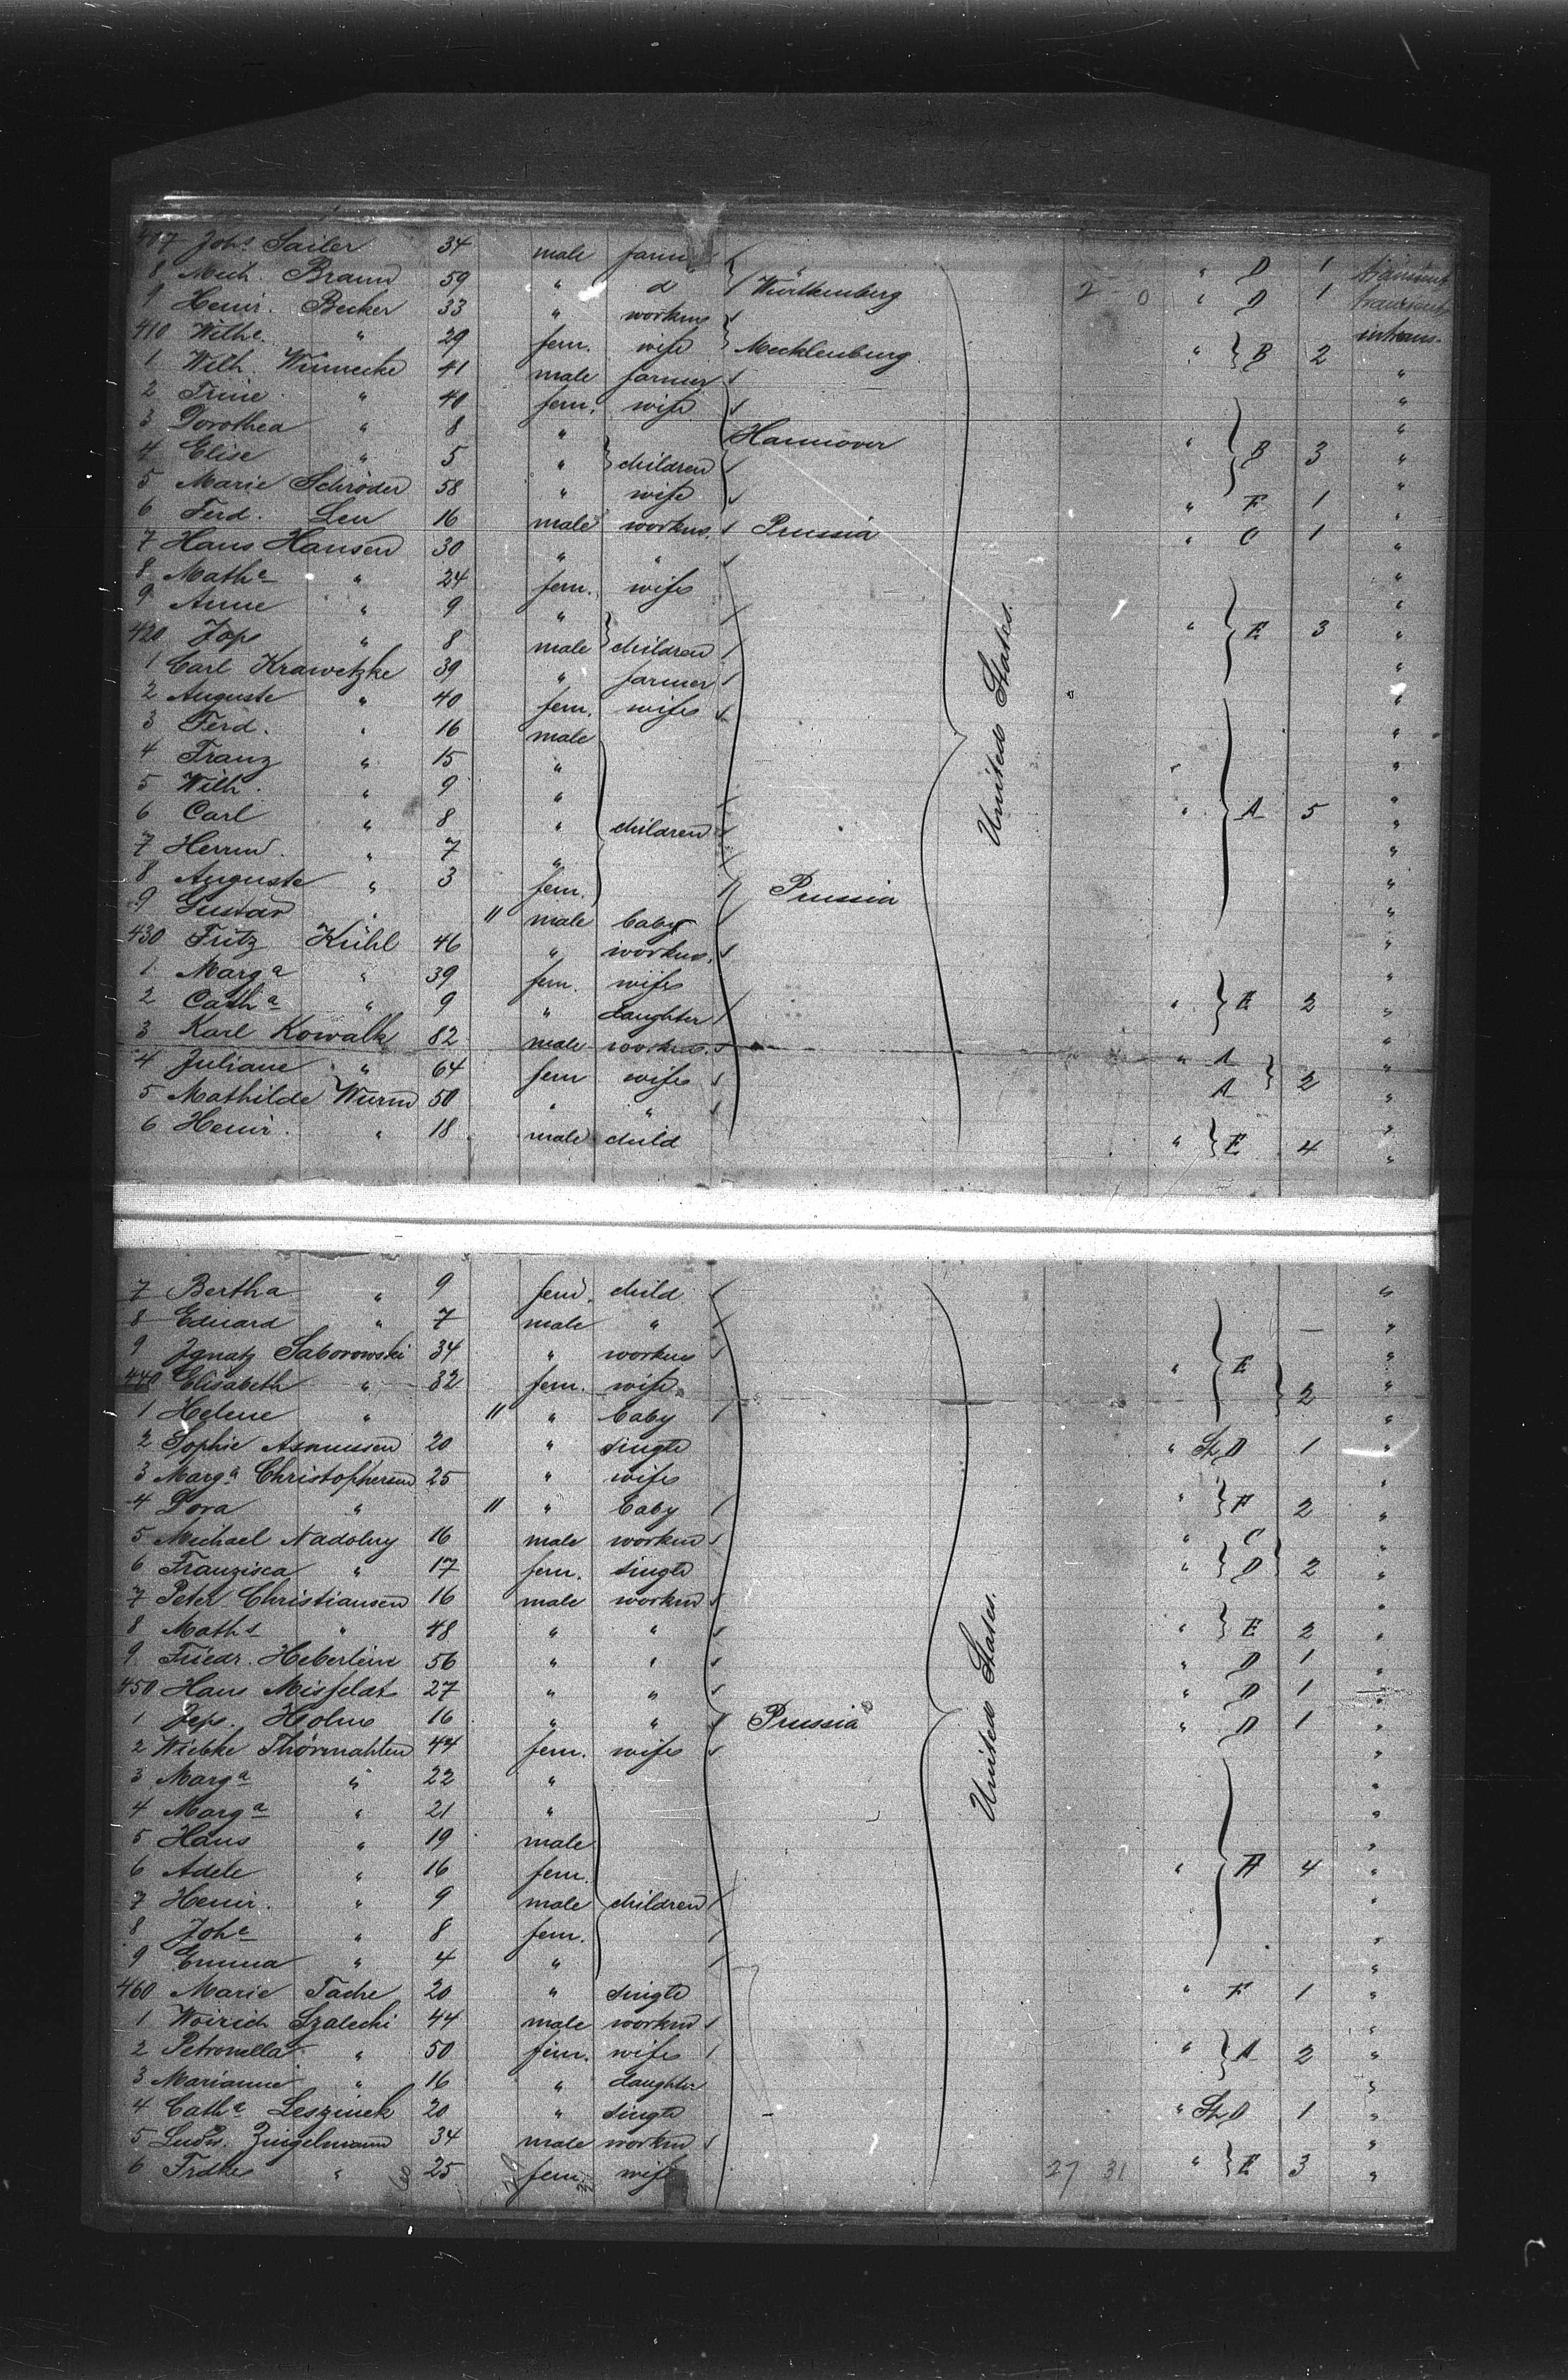 407 Joh.s Sailer 34 male farm " D 1
8 Mich. Braun 59 " d Württemberg 2 - 0 " D 1
9 Heinr. Becker 33 " workm
410 Wilh.e " 29 fem. wife Mecklenburg " B 2 intrans.
1 Wilh. Winnecke 41 male farmer "
2 Trine " 40 fem. wife "
3 Dorothea " 8 " Hannover "
4 Elise " 5 " children " B 3 "
5 Marie Schröder 58 " wife " F 1 "
6 Ferd. Leu 16 male workm. Prussia " C 1 "
7 Hans Hansen 30 " " "
8 Math.a " 24 fem. wife "
9 Anne " 9 " "
420 Jops " 8 male children " E 3 "
1 Carl Krawetzke 39 " farmer "
2 Auguste " 40 fem. wife "
3 Ferd. " 16 male United States. "
4 Franz " 15 " "
5 Wilh. " 9 " "
6 Carl " 8 " children " A 5 "
7 Herrm. " 7 " "
8 Auguste " 3 fem. Prussia "
9 Gustav " 11 male baby "
430 Fritz Kühl 46 " workm. "
1 Marg.a " 39 fem. wife "
2 Cath.a " 9 " daughter " E 2 "
3 Karl Kowalk 82 male workm. " A "
4 Juliane " 64 fem wife A 2 "
5 Mathilde Wurm 50 " " "
6 Heinr. " 18 male child " E 4 "
7 Bertha " 9 fem. child "
8 Eduard " 7 male " — "
9 Ignatz Saborowski 34 " workm "
440 Elisabeth " 32 fem. wife " E 2 "
1 Helene " 11 " baby "
2 Sophie Asmussen 20 " single " St D 1 "
3 Marg.a Christophersen 25 " wife "
4 Dora " 11 " baby " F 2 "
5 Michael Nadolny 16 male workm " C "
6 Franzisca " 17 fem. single " D 2 "
7 Peter Christiansen 16 male workm "
8 Math.s " 48 " " " E 2 "
9 Friedr. Heberlein 56 " " " D 1 "
450 Hans Misfeldt 27 " " " D 1 "
1 Jeps. Holm 16 " " Prussia " D 1 "
2 Wiebke Thörmählen 44 fem. wife United States. "
3 Marg.a " 22 " "
4 Marg.a " 21 " "
5 Hans " 19 male "
6 Adele " 16 fem. " A 4 "
7 Heinr. " 9 male children "
8 Joh.e " 8 fem. "
9 Emma " 4 " "
460 Marie Tache 20 " single " F 1 "
1 Woirich Szalecki 44 male workm "
2 Petronella " 50 fem. wife " A 2 "
3 Marianne " 16 " daughter "
4 Cath.a Leszinek 20 " single " St D 1 "
5 Ludw. Zingelmann 34 male workm "
6 Frdke " 25 fem. wife 27 31 " E 3 "